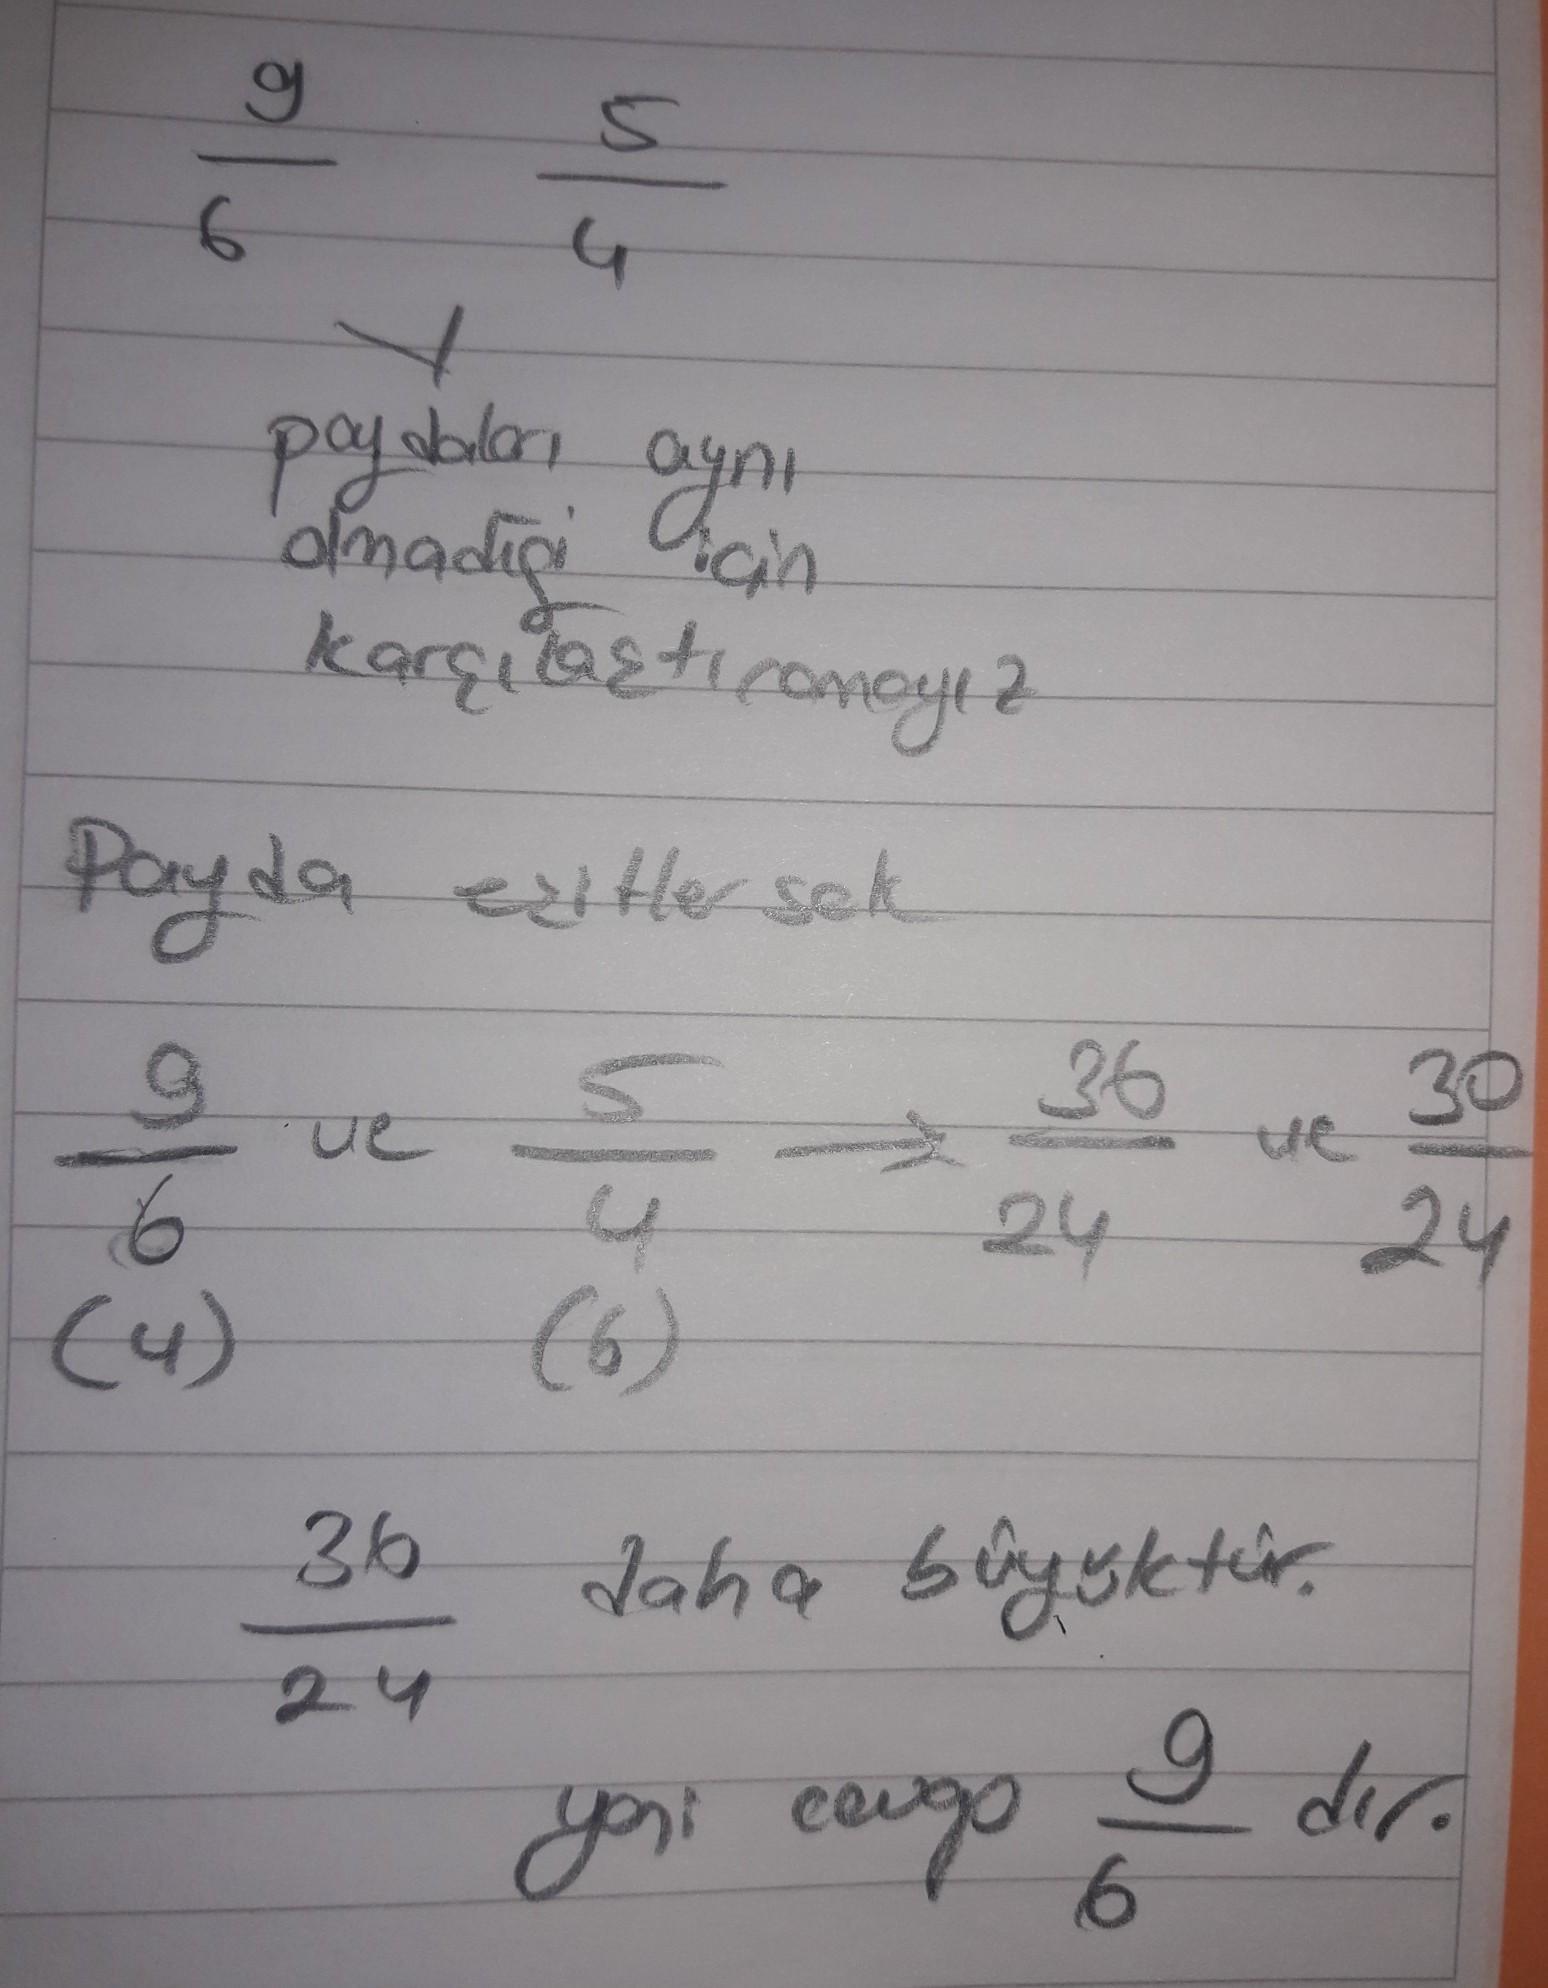 9/6 5/4
paydaları aynı
olmadığı için
karşılaştıramayız
Payda eşitlersek
9/6 ve 5/4 → 36/24 ve 30/24
(4) (6)
36/24 daha büyüktür.
yani cevap 9/6 dır.